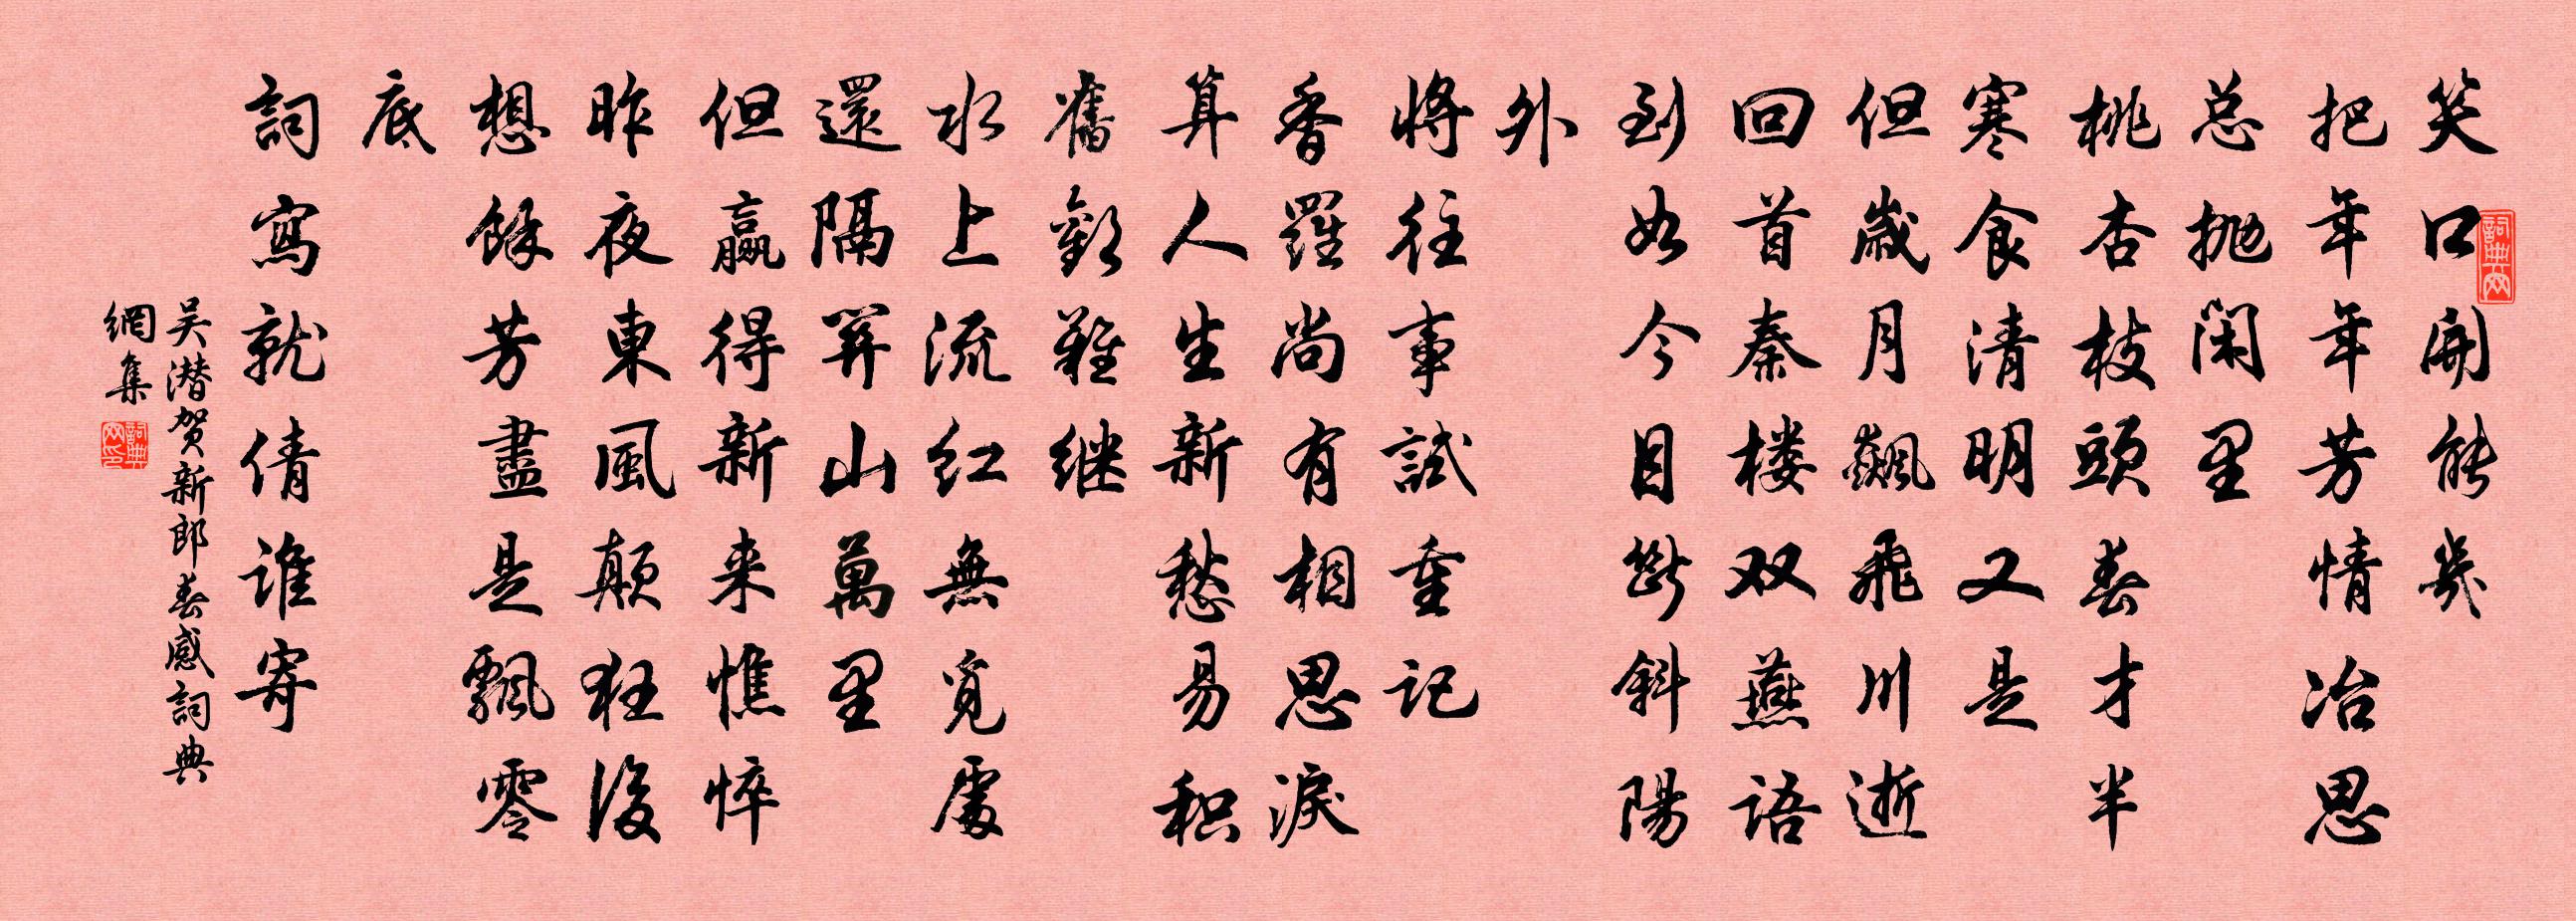 笑口開能幾
把年年芳情冶思
总抛闲里
桃杏枝頭春才半
寒食清明又是
但歲月飆飛川逝
回首秦楼双燕語
到如今目斷斜陽
外
將往事試重記
香羅尚有相思淚
算人生新愁易积
舊歡難继
水上流红無覓處
還隔關山萬里
但贏得新来憔悴
昨夜東風颠狂後
想餘芳盡是飄零
底
詞寫就倩谁寄
吴潜贺新郎春感詞典
網集
詞典网
詞典网印